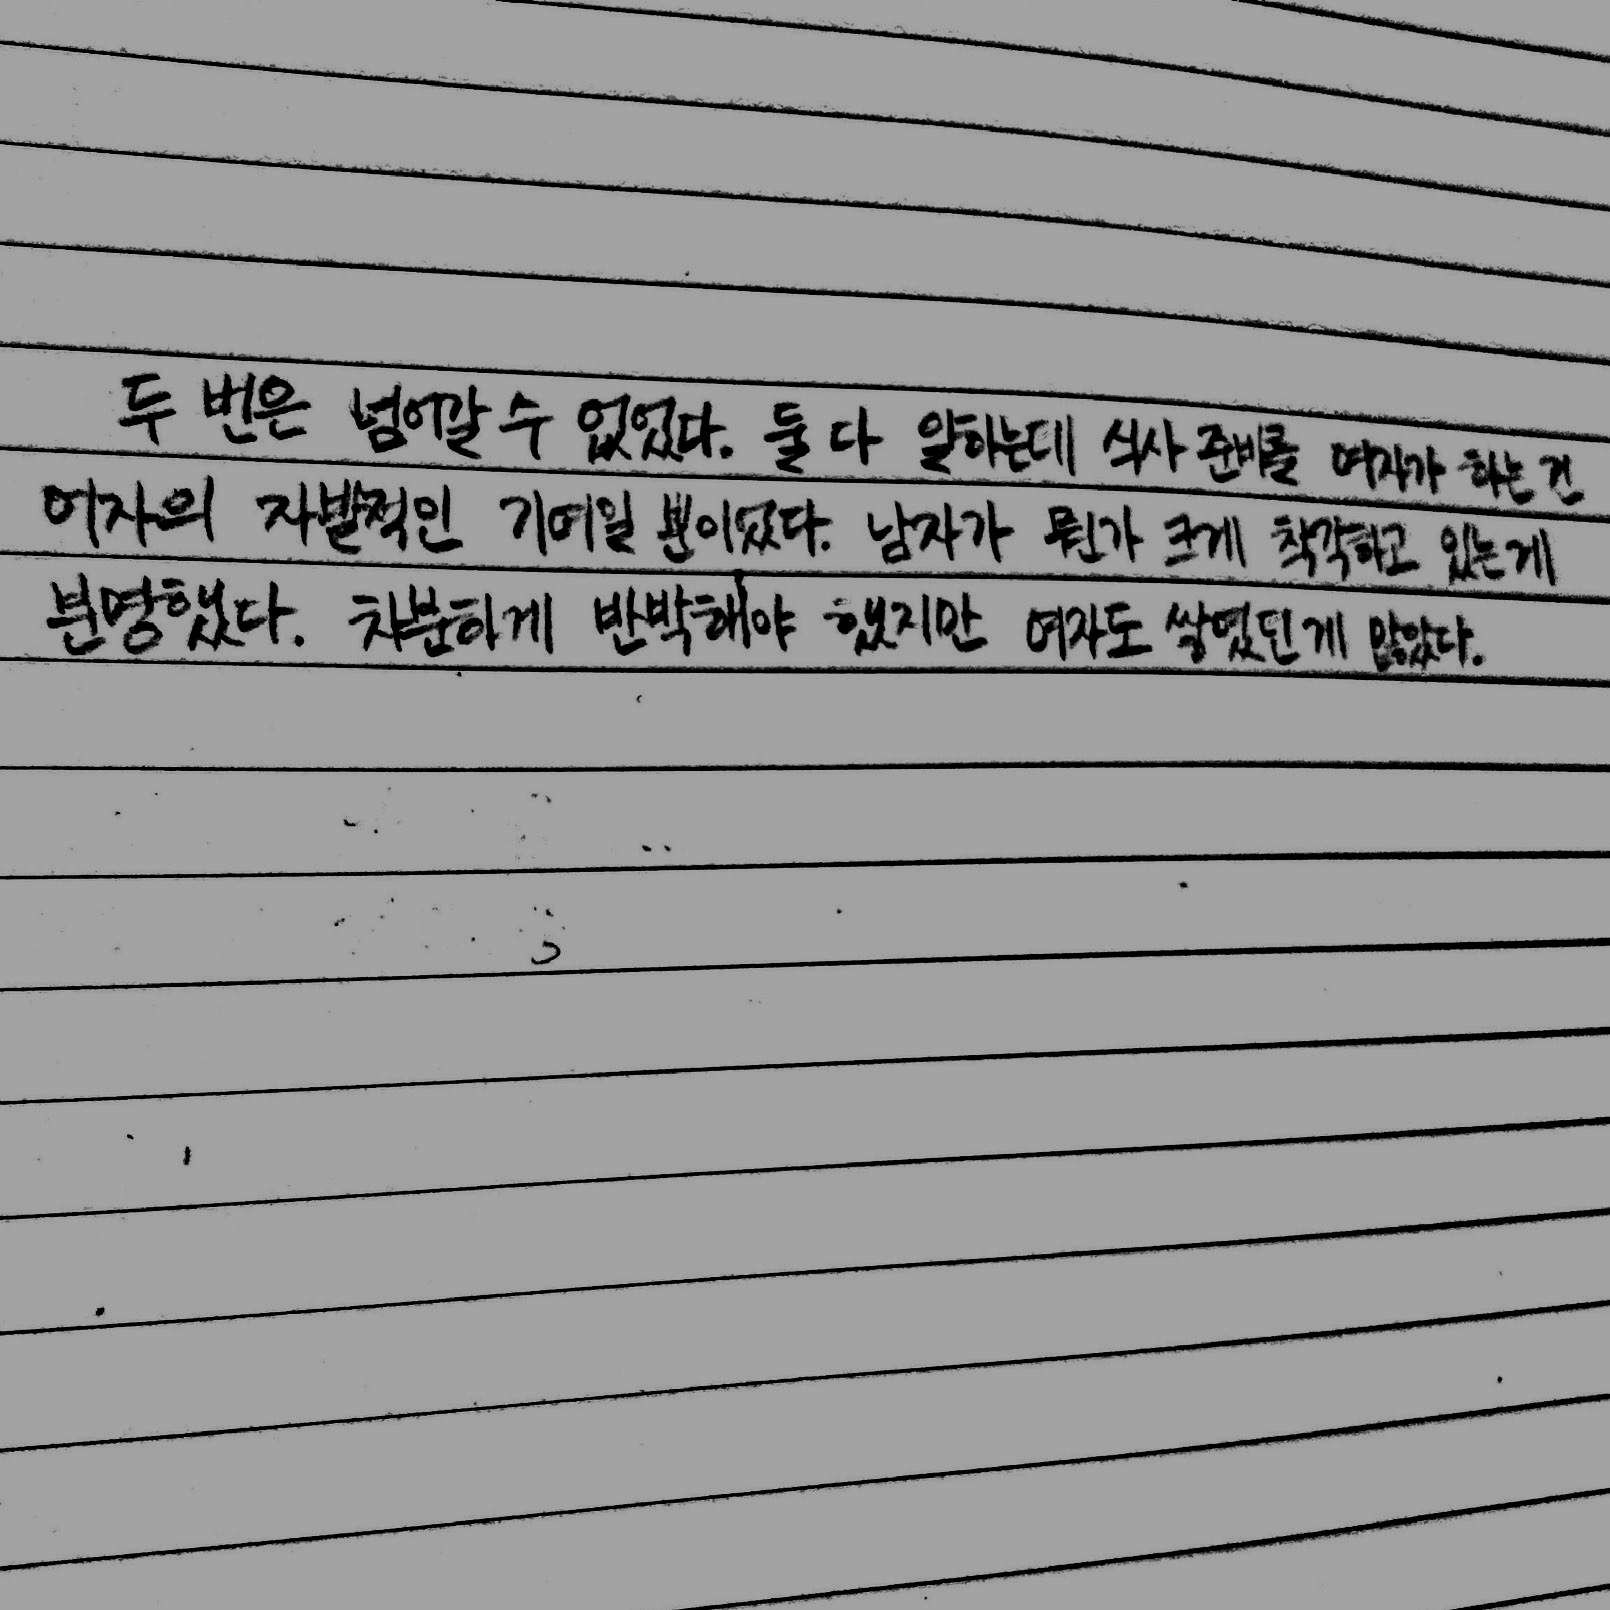 두 번은 넘어갈 수 없었다. 둘 다 일하는데 식사 준비를 여자가 하는 건
여자의 자발적인 기여일 뿐이었다. 남자가 뭔가 크게 착각하고 있는게
분명했다. 차분하게 반박해야 했지만 여자도 쌓였던게 많았다.